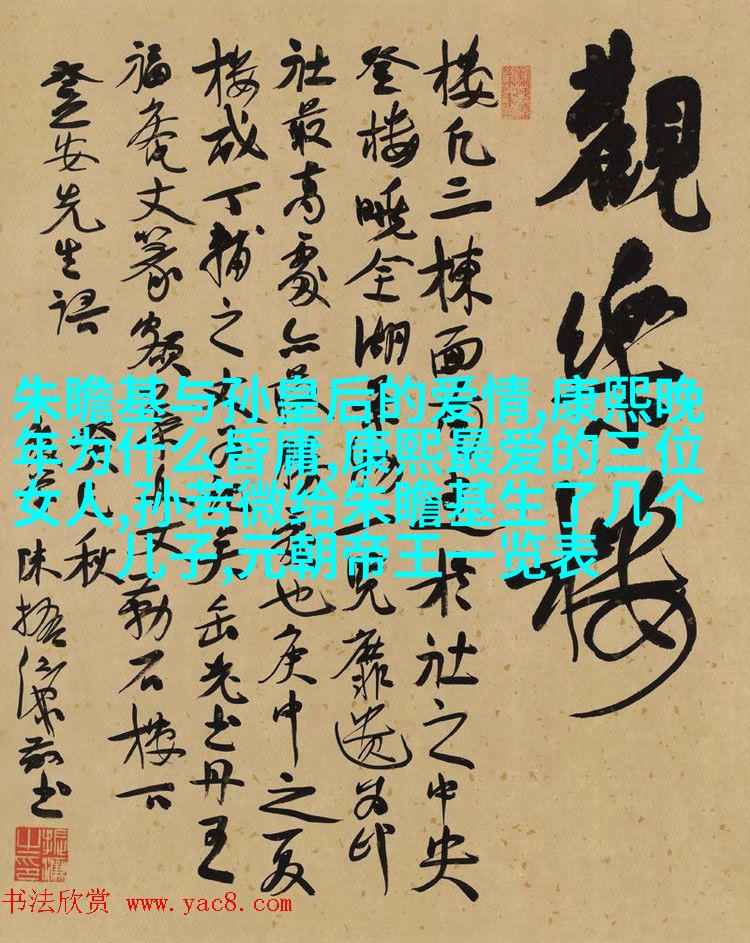 觀樂樓
樓凡三棟面 於社之中央
登樓曉全湖 一覽靡遺為印
社最高處亦最勝 也庚申之夏
樓成丁輔之 缶老書丹王
福庵丈篆額 勒石樓下
先生語
秋
書
朱瞻基与孙皇后的爱情,康熙晚
年为什么昏庸,康熙最爱的三位
女人,孙若微给朱瞻基生了几个
儿子,元朝帝王一览表
书法欣赏 www.yac8.com